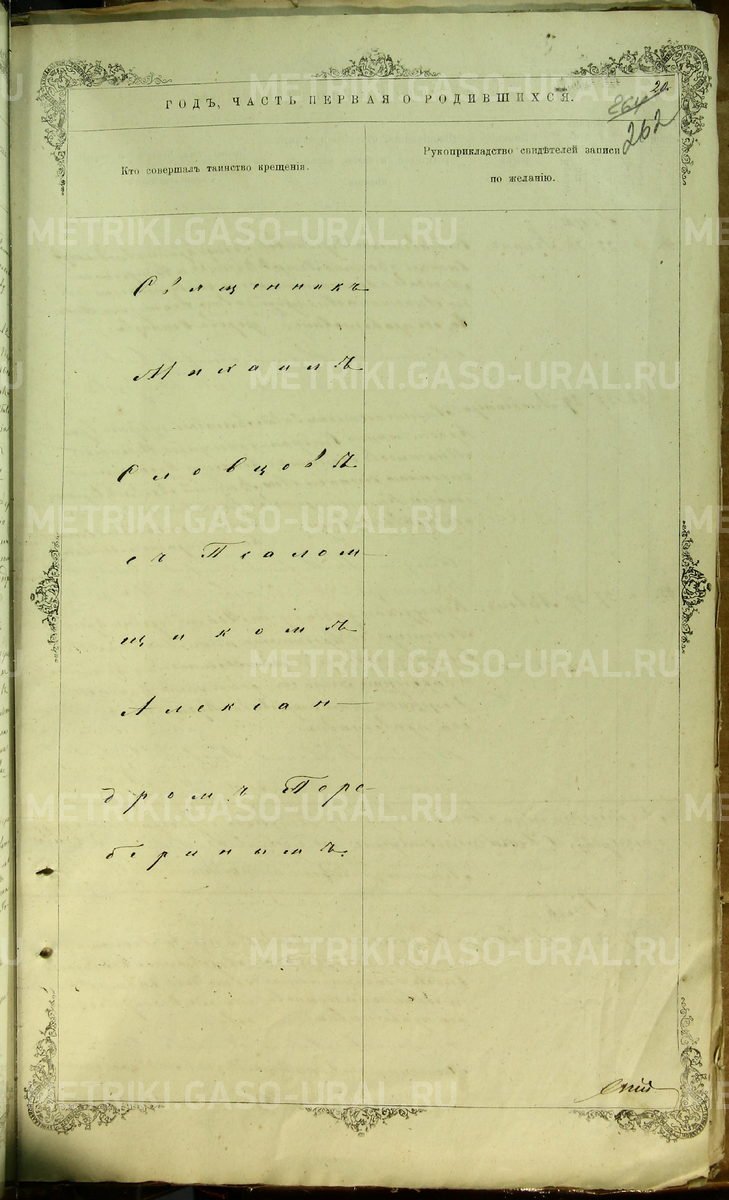 ГОДЪ, ЧАСТЬ ПЕРВАЯ О РОДИВШИХСЯ.
20.
262
Кто совершалъ таинство крещенія.
Рукоприкладство свидѣтелей записи
по желанію.
Священникъ
Михаилъ
Словцовъ
съ Псалом
щикомъ
Алексан—
дромъ
беринымъ.
METRIKI.GASO-URAL.RU